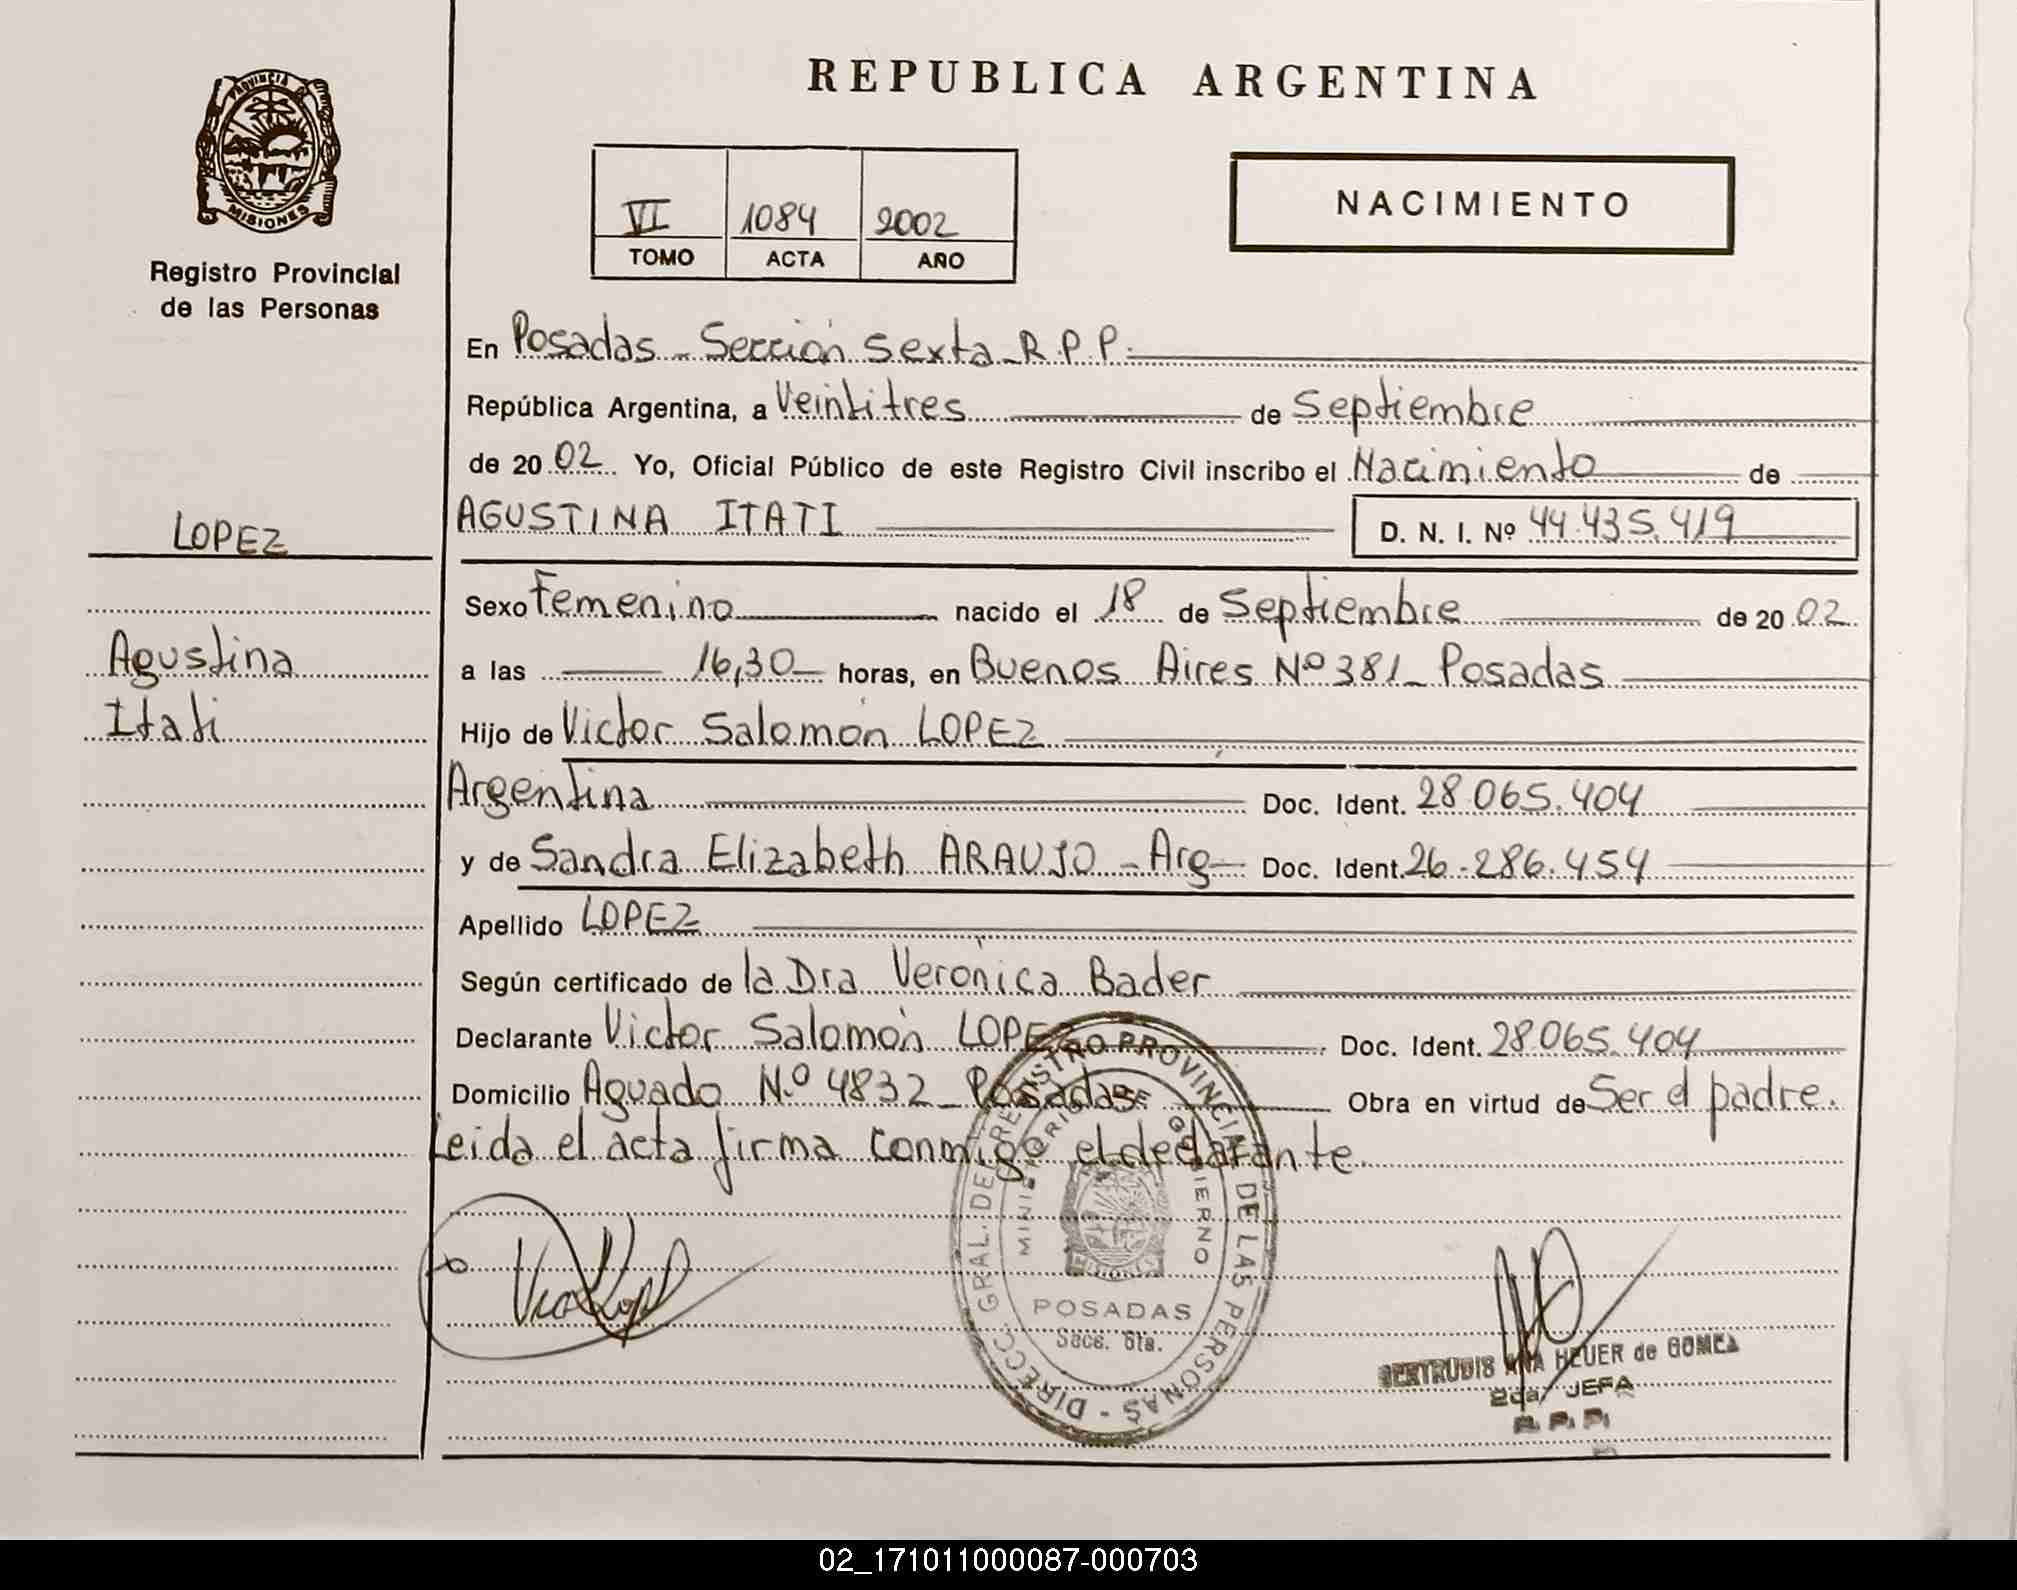 REPUBLICA ARGENTINA
PROVINCIA DE
MISIONES
Registro Provincial
de las Personas
VI 1084 2002
TOMO ACTA AÑO
NACIMIENTO
LOPEZ
Agustina
Itati
En Posadas - Sección Sexta - R.P.P.
República Argentina, a Veintitres de Septiembre
de 2002 Yo, Oficial Público de este Registro Civil inscribo el Nacimiento de
AGUSTINA ITATI D. N. I. Nº 44.435.419
Sexo Femenino nacido el 18 de Septiembre de 2002
a las 16,30 horas, en Buenos Aires Nº 381 - Posadas
Hijo de Victor Salomón LOPEZ
Argentina Doc. Ident. 28.065.404
y de Sandra Elizabeth ARAUJO - Arg Doc. Ident. 26.286.454
Apellido LOPEZ
Según certificado de la Dra Verónica Bader
Declarante Victor Salomón LOPEZ Doc. Ident. 28.065.404
Domicilio Aguado N.º 4832 - Posadas Obra en virtud de Ser el padre.
Leida el acta firma conmigo el declarante
DIRECC. GRAL. DE REGISTRO PROVINCIAL DE LAS PERSONAS -
MINISTERIO DE GOBIERNO
MISIONES
POSADAS
Secc. 6ta.
GERTRUDIS ANA HEUER de GOMEZ
2da. JEFA
R. P. P.
02_171011000087-000703